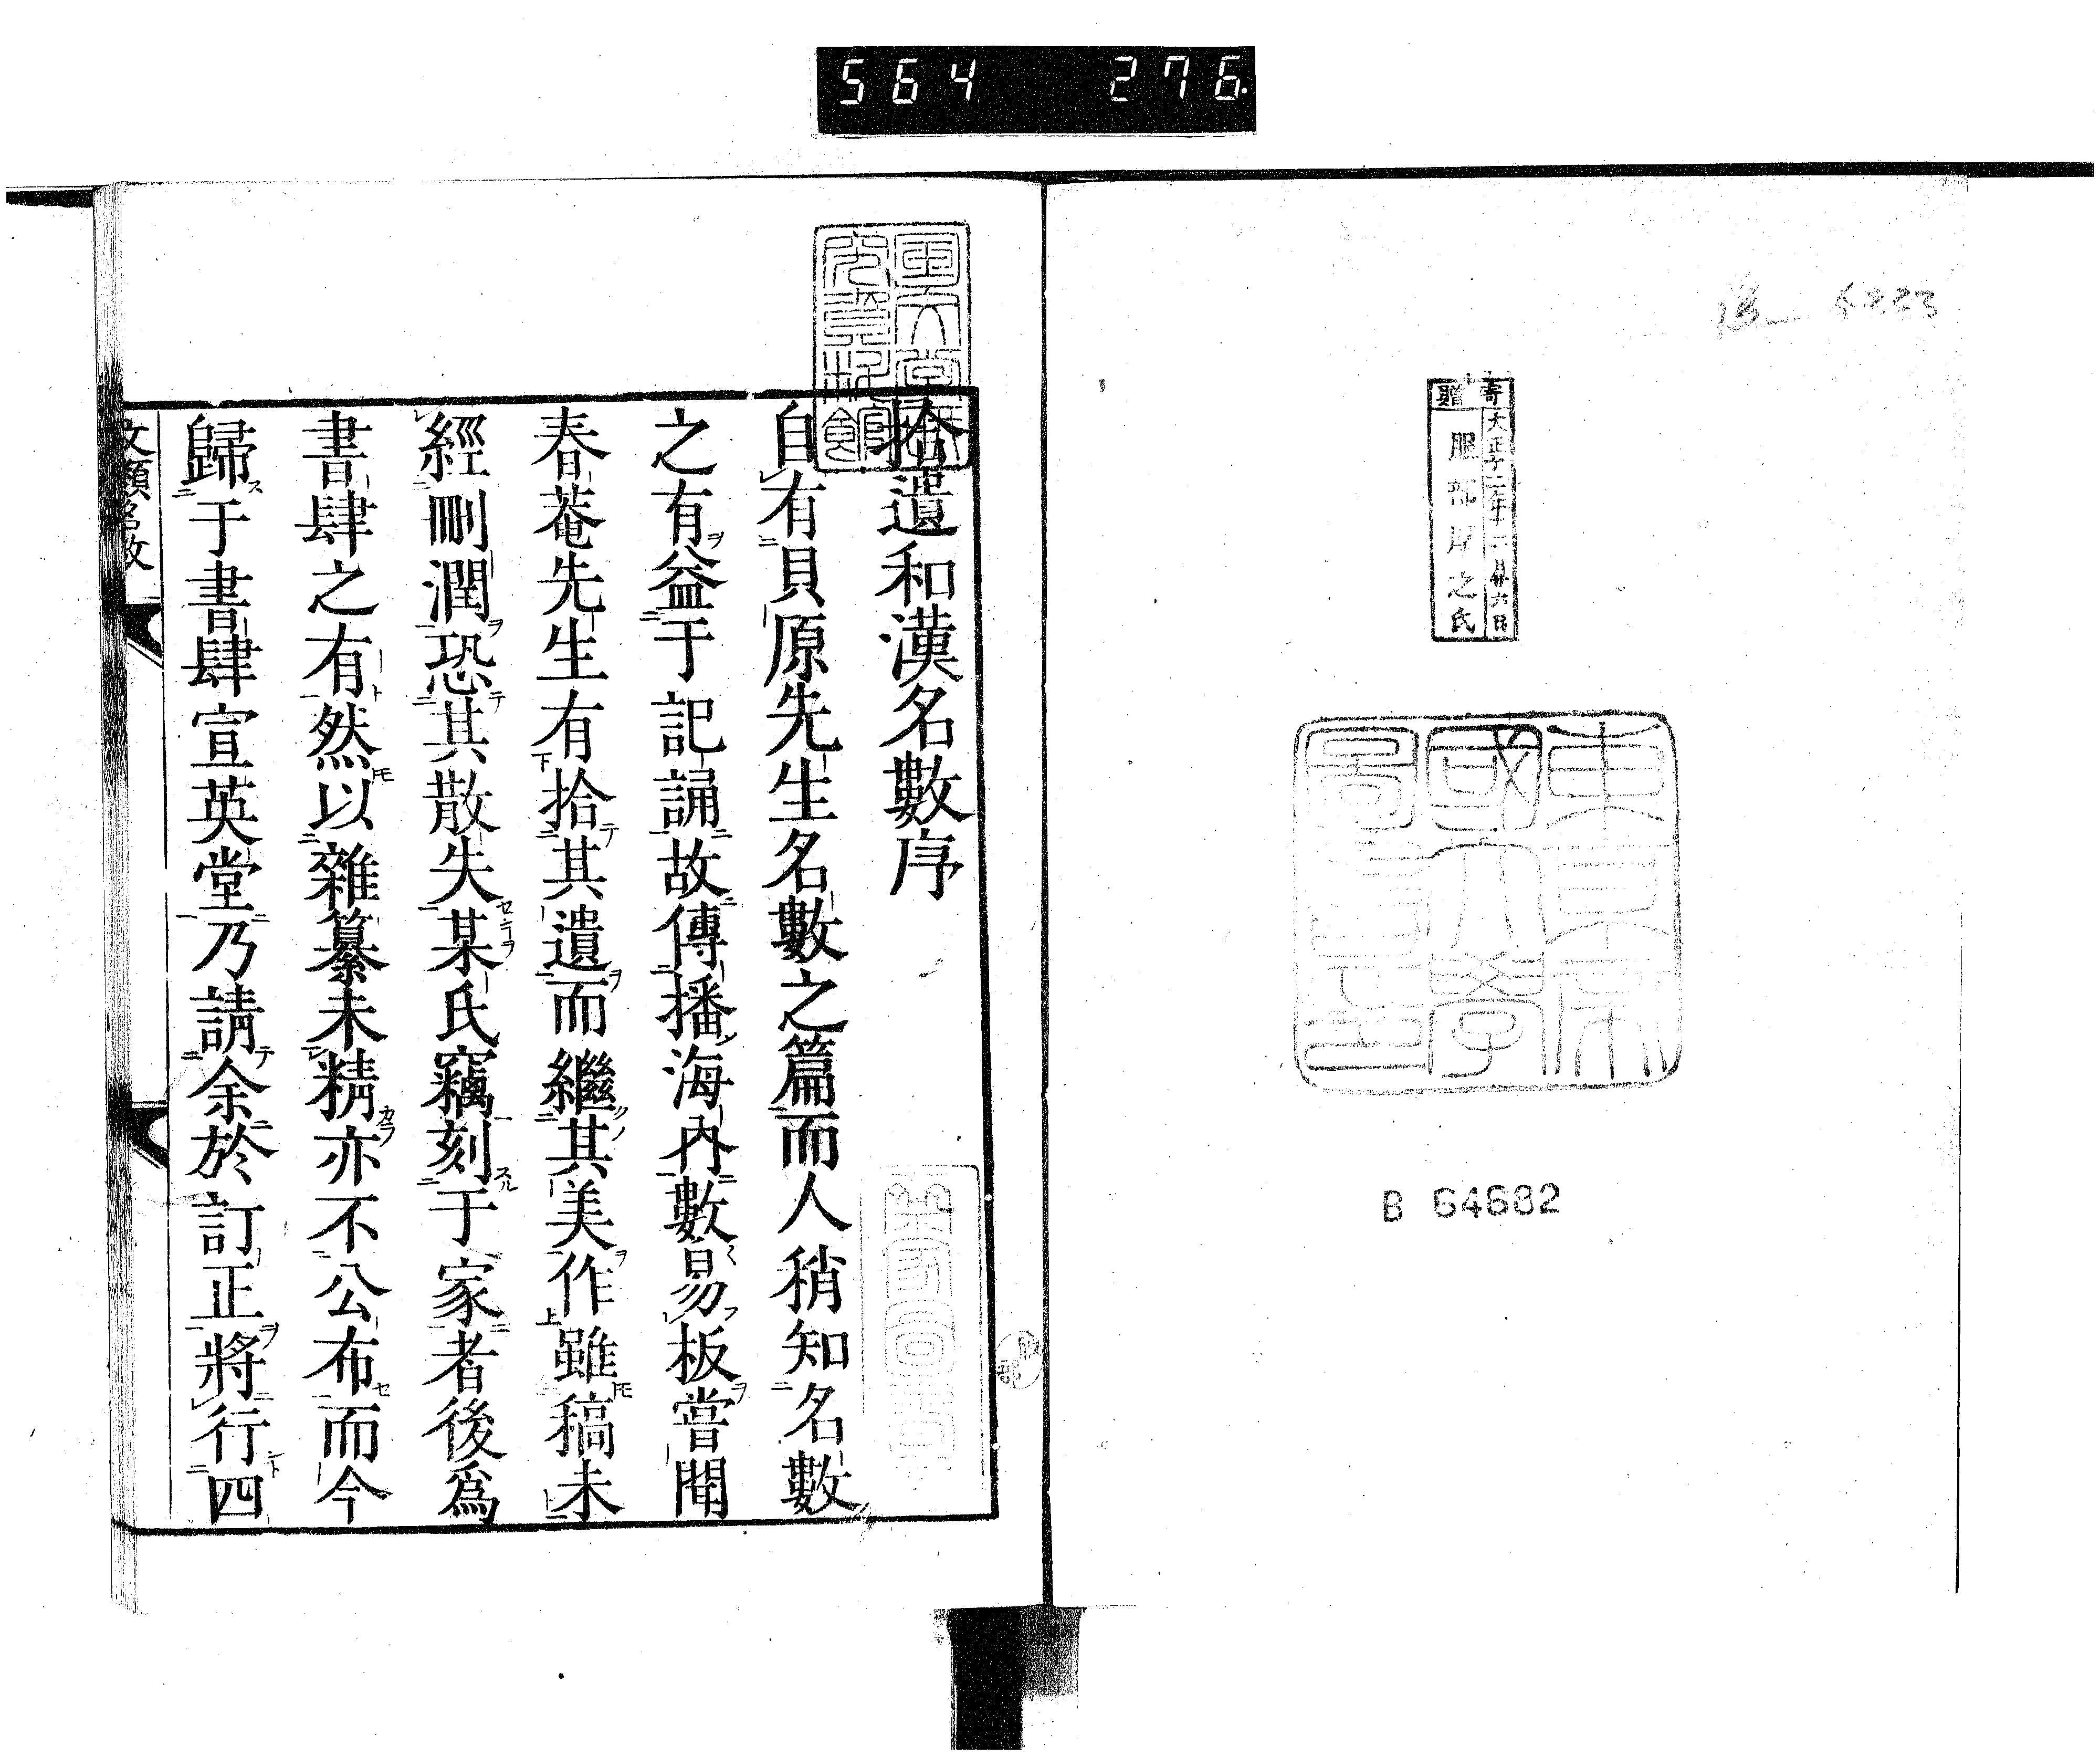 564 276
寄贈
大正十二年一月廿六日
服部 之氏
東京
國大學
圖書
B 64682
拾遺和漢名數序
自有貝原先生名數之篇而人稍知名數
之有益于記誦故傳播海内數易板嘗聞
春菴先生有拾其遺而繼其美作雖稿未
經刪潤恐其散失某氏竊刻于家者後爲
書肆之有然以雜纂未精亦不公布而今
歸于書肆宣英堂乃請余於訂正將行四